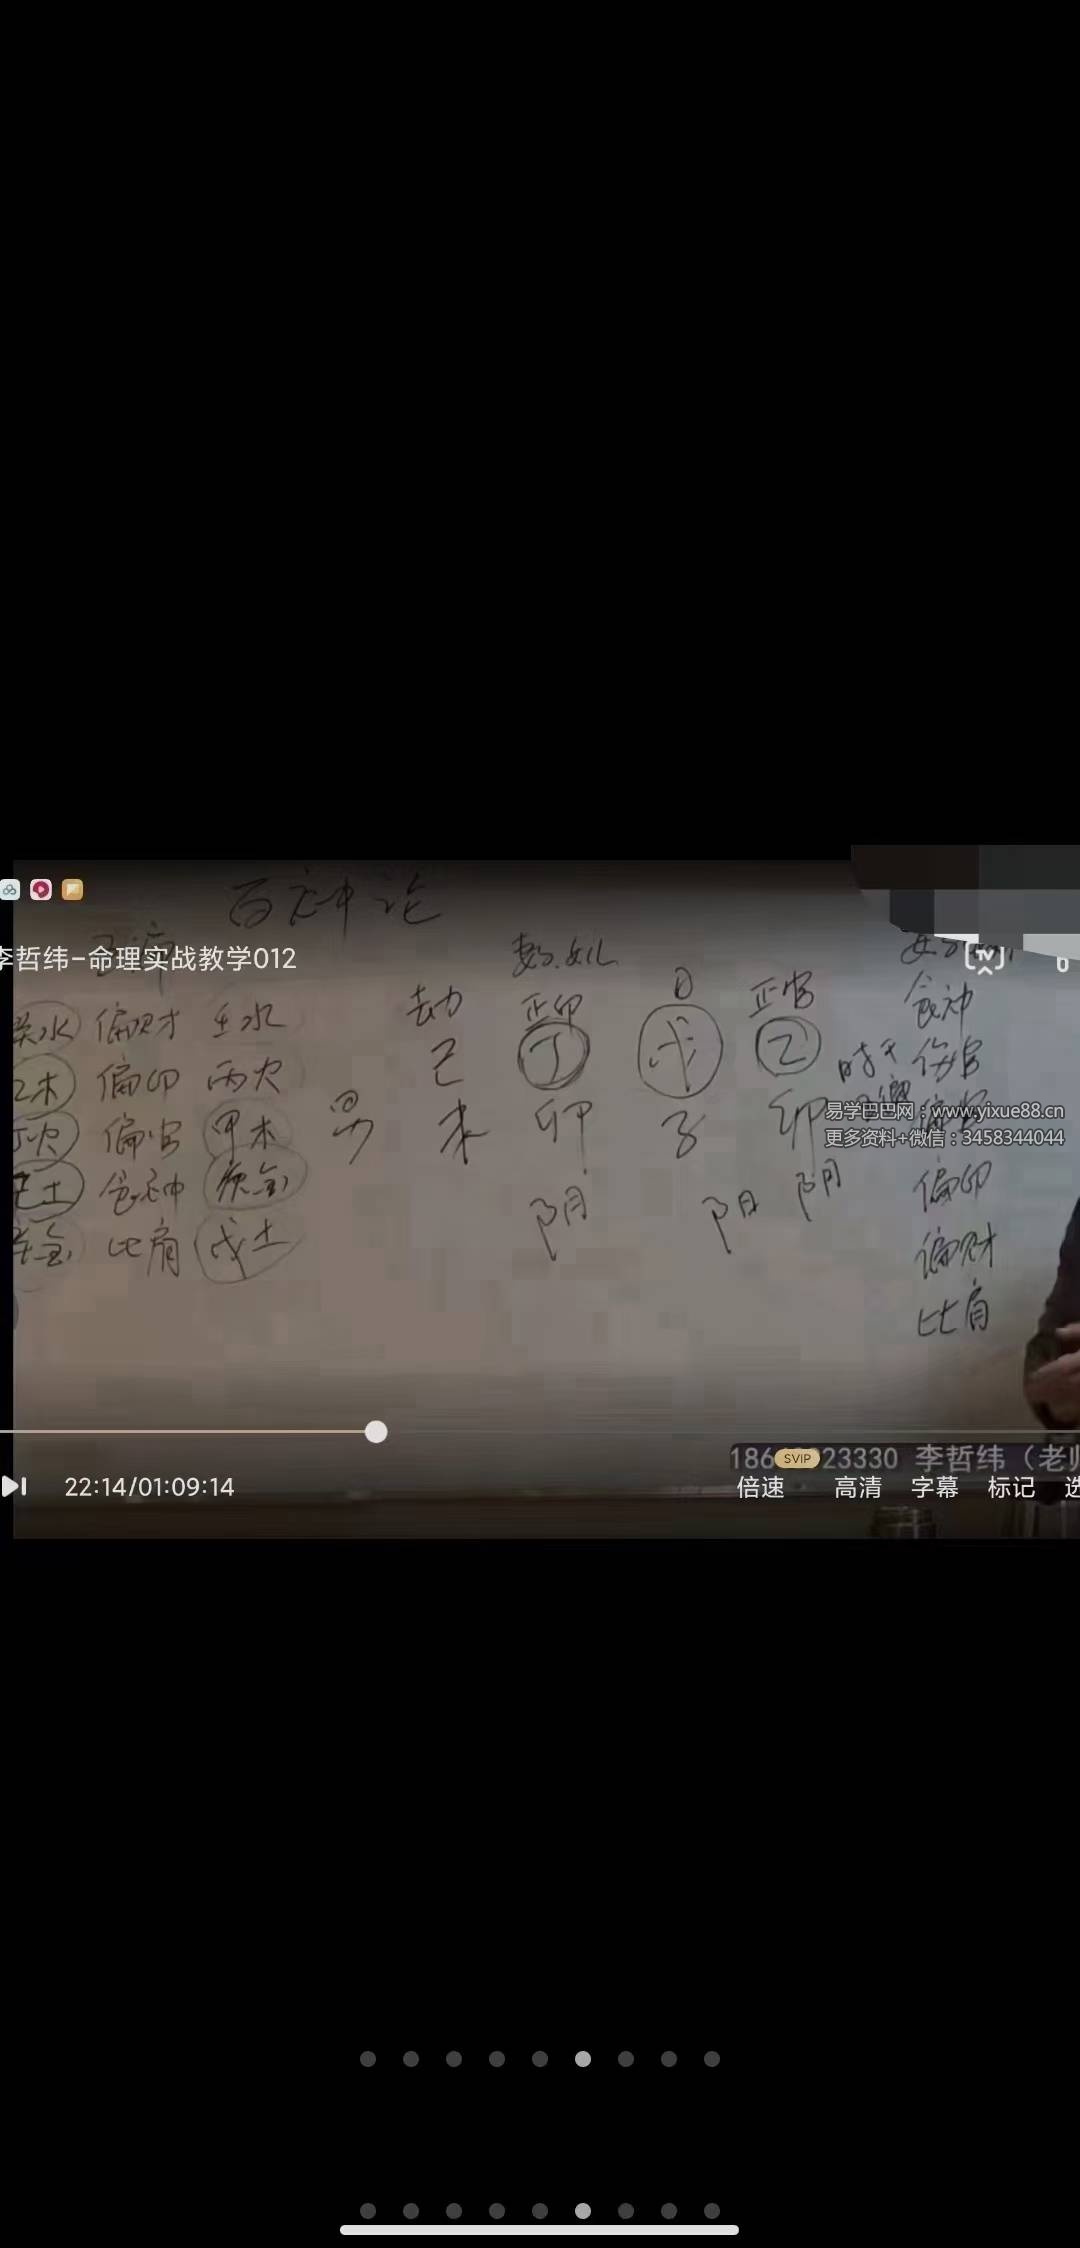 百神论
李哲纬-命理实战教学012
癸水 偏财 壬水
乙木 偏印 丙火
丁火 偏官 甲木
己土 食神 庚金
辛金 比肩 戊土
男
劫 正印 日 正官
己 丁 戊 乙
未 卯 子 卯
阴 阳 阴
时干
食神
伤官
偏官
偏印
偏财
比肩
易学巴巴网：www.yixue88.cn
更多资料+微信：3458344044
186 SVIP 23330 李哲纬（老师
22:14/01:09:14
倍速 高清 字幕 标记 选